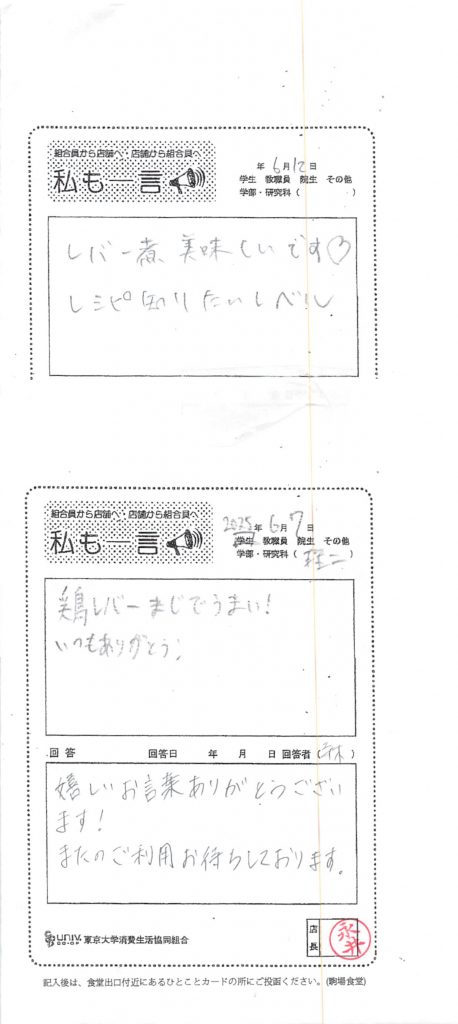 組合員から店舗へ・店舗から組合員へ
私も一言
年 6月12日
学生 教職員 院生 その他
学部・研究科（　　　）
レバー煮 美味しいです♡
レシピ知りたいレベル
組合員から店舗へ・店舗から組合員へ
私も一言
2025年 6月 7日
学生 教職員 院生 その他
学部・研究科（ 理二
鶏レバーまじでうまい!
いつもありがとう;
回答 回答日 年 月 日 回答者（
嬉しいお言葉ありがとうござい
ます!
またのご利用お待ちしております。
UNIV.
CO-OP
東京大学消費生活協同組合
店長
永井
記入後は、食堂出口付近にあるひとことカードの所にご投函ください。(駒場食堂)